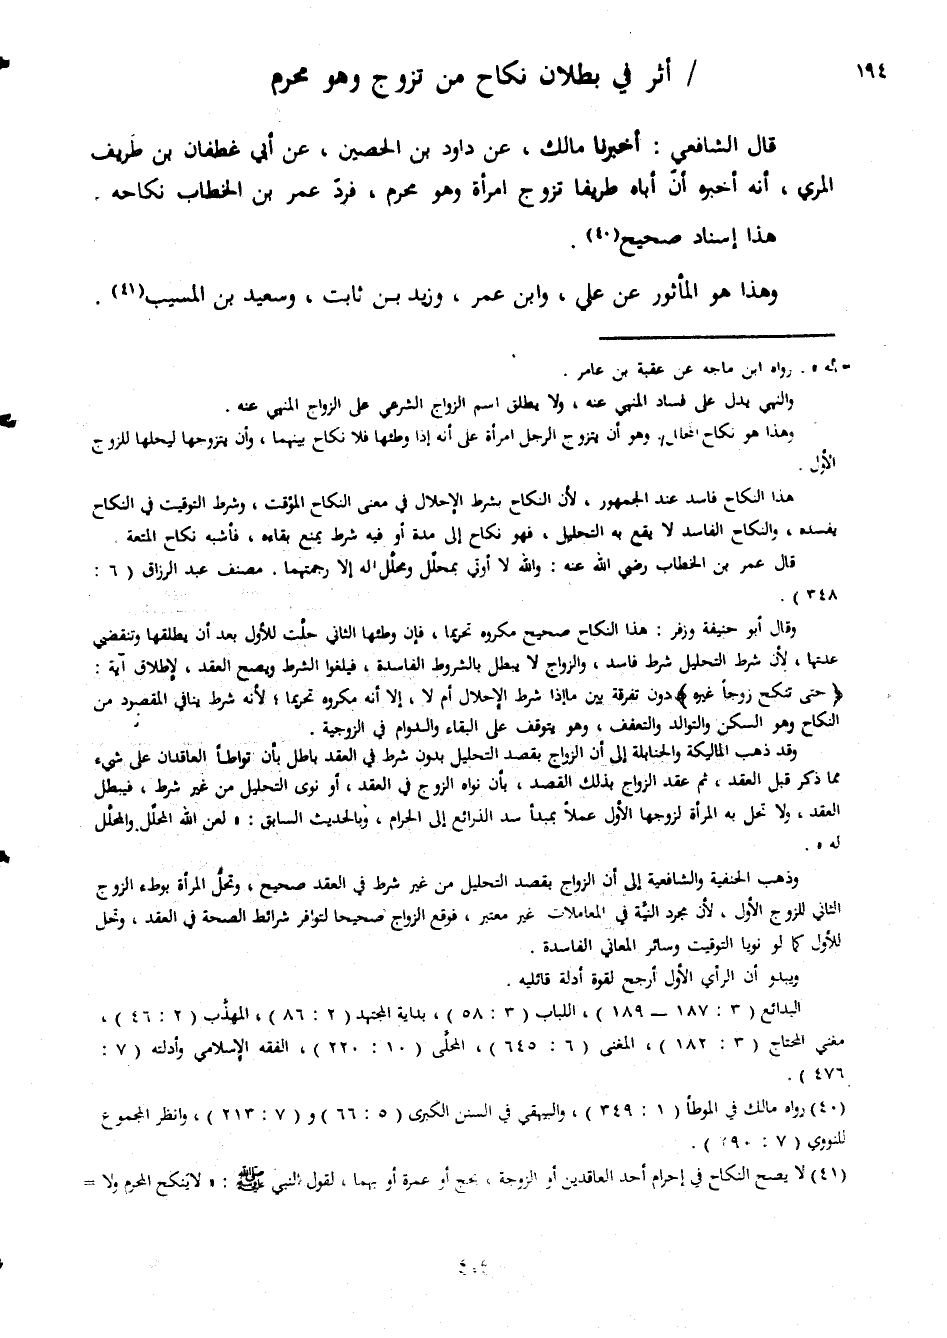 ١٩٤
/ أثر في بطلان نكاح من تزوج وهو محرم
قال الشافعي : أخبرنا مالك ، عن داود بن الحصين ، عن أبي غطفان بن طَريف
المري ، أنه أخبره أنّ أباه طريفا تزوج امرأة وهو محرم ، فردّ عمر بن الخطاب نكاحه .
هذا إسناد صحيح(٤٠) .
وهذا هو المأثور عن علي ، وابن عمر ، وزيد بن ثابت ، وسعيد بن المسيب(٤١) .
= له » . رواه ابن ماجه عن عقبة بن عامر .
والنهي يدل على فساد المنهي عنه ، ولا يطلق اسم الزواج الشرعي على الزواج المنهي عنه .
وهذا هو نكاح المحلل, وهو أن يتزوج الرجل امرأة على أنه إذا وطئها فلا نكاح بينهما ، وأن يتزوجها ليحلها للزوج
الأول .
هذا النكاح فاسد عند الجمهور ، لأن النكاح بشرط الإحلال في معنى النكاح المؤقت ، وشرط التوقيت في النكاح
يفسده ، والنكاح الفاسد لا يقع به التحليل ، فهو نكاح إلى مدة أو فيه شرط يمنع بقاءه ، فأشبه نكاح المتعة .
قال عمر بن الخطاب رضي الله عنه : والله لا أوتي بمحلّل ومحلّل له إلا رجمتهما . مصنف عبد الرزاق ( ٦ :
٣٤٨ ) .
وقال أبو حنيفة وزفر : هذا النكاح صحيح مكروه تحريما ، فإن وطئها الثاني حلّت للأول بعد أن يطلقها وتنقضي
عدتها ، لأن شرط التحليل شرط فاسد ، والزواج لا يبطل بالشروط الفاسدة ، فيلغوا الشرط ويصح العقد ، لإطلاق آية :
﴿ حتى تنكح زوجاً غيره ﴾دون تفرقة بين ماإذا شرط الإحلال أم لا ، إلا أنه مكروه تحريما ؛ لأنه شرط ينافي المقصود من
النكاح وهو السكن والتوالد والتعفف ، وهو يتوقف على البقاء والدوام في الزوجية .
وقد ذهب المالكية والحنابلة إلى أن الزواج بقصد التحليل بدون شرط في العقد باطل بأن تواطأ العاقدان على شيء
مما ذكر قبل العقد ، ثم عقد الزواج بذلك القصد ، بأن نواه الزوج في العقد ، أو نوى التحليل من غير شرط ، فيبطل
العقد ، ولا تحل به المرأة لزوجها الأول عملاً بمبدأ سد الذرائع إلى الحرام ، وبالحديث السابق : « لعن الله المحلّل والمحلّل
له » .
وذهب الحنفية والشافعية إلى أن الزواج بقصد التحليل من غير شرط في العقد صحيح ، وتحلُّ المرأة بوطء الزوج
الثاني للزوج الأول ، لأن مجرد النيَّة في المعاملات غير معتبر ، فوقع الزواج صحيحا لتوافر شرائط الصحة في العقد ، وتحل
للأول كما لو نويا التوقيت وسائر المعاني الفاسدة .
ويبدو أن الرأي الأول أرجح لقوة أدلة قائليه .
البدائع ( ٣ : ١٨٧ — ١٨٩ ) ، اللباب ( ٣ : ٥٨ ) ، بداية المجتهد ( ٢ : ٨٦ ) ، المهذَّب ( ٢ : ٤٦ ) ،
مغني المحتاج ( ٣ : ١٨٢ ) ، المغنى ( ٦ : ٦٤٥ ) ، المحلَّى ( ١٠ : ٢٢٠ ) ، الفقه الإسلامي وأدلته ( ٧ :
٤٧٦ ) .
(٤٠) رواه مالك في الموطأ ( ١ : ٣٤٩ ) ، والبيهقي في السنن الكبرى ( ٥ : ٦٦ ) و ( ٧ : ٢١٣ ) ، وانظر المجموع
للنووي ( ٧ :
(٤١) لا يصح النكاح في إحرام أحد العاقدين أو الزوجة ، بحج أو عمرة أو بهما ، لقول النبي ﷺ : « لايَنكح المحرم ولا =